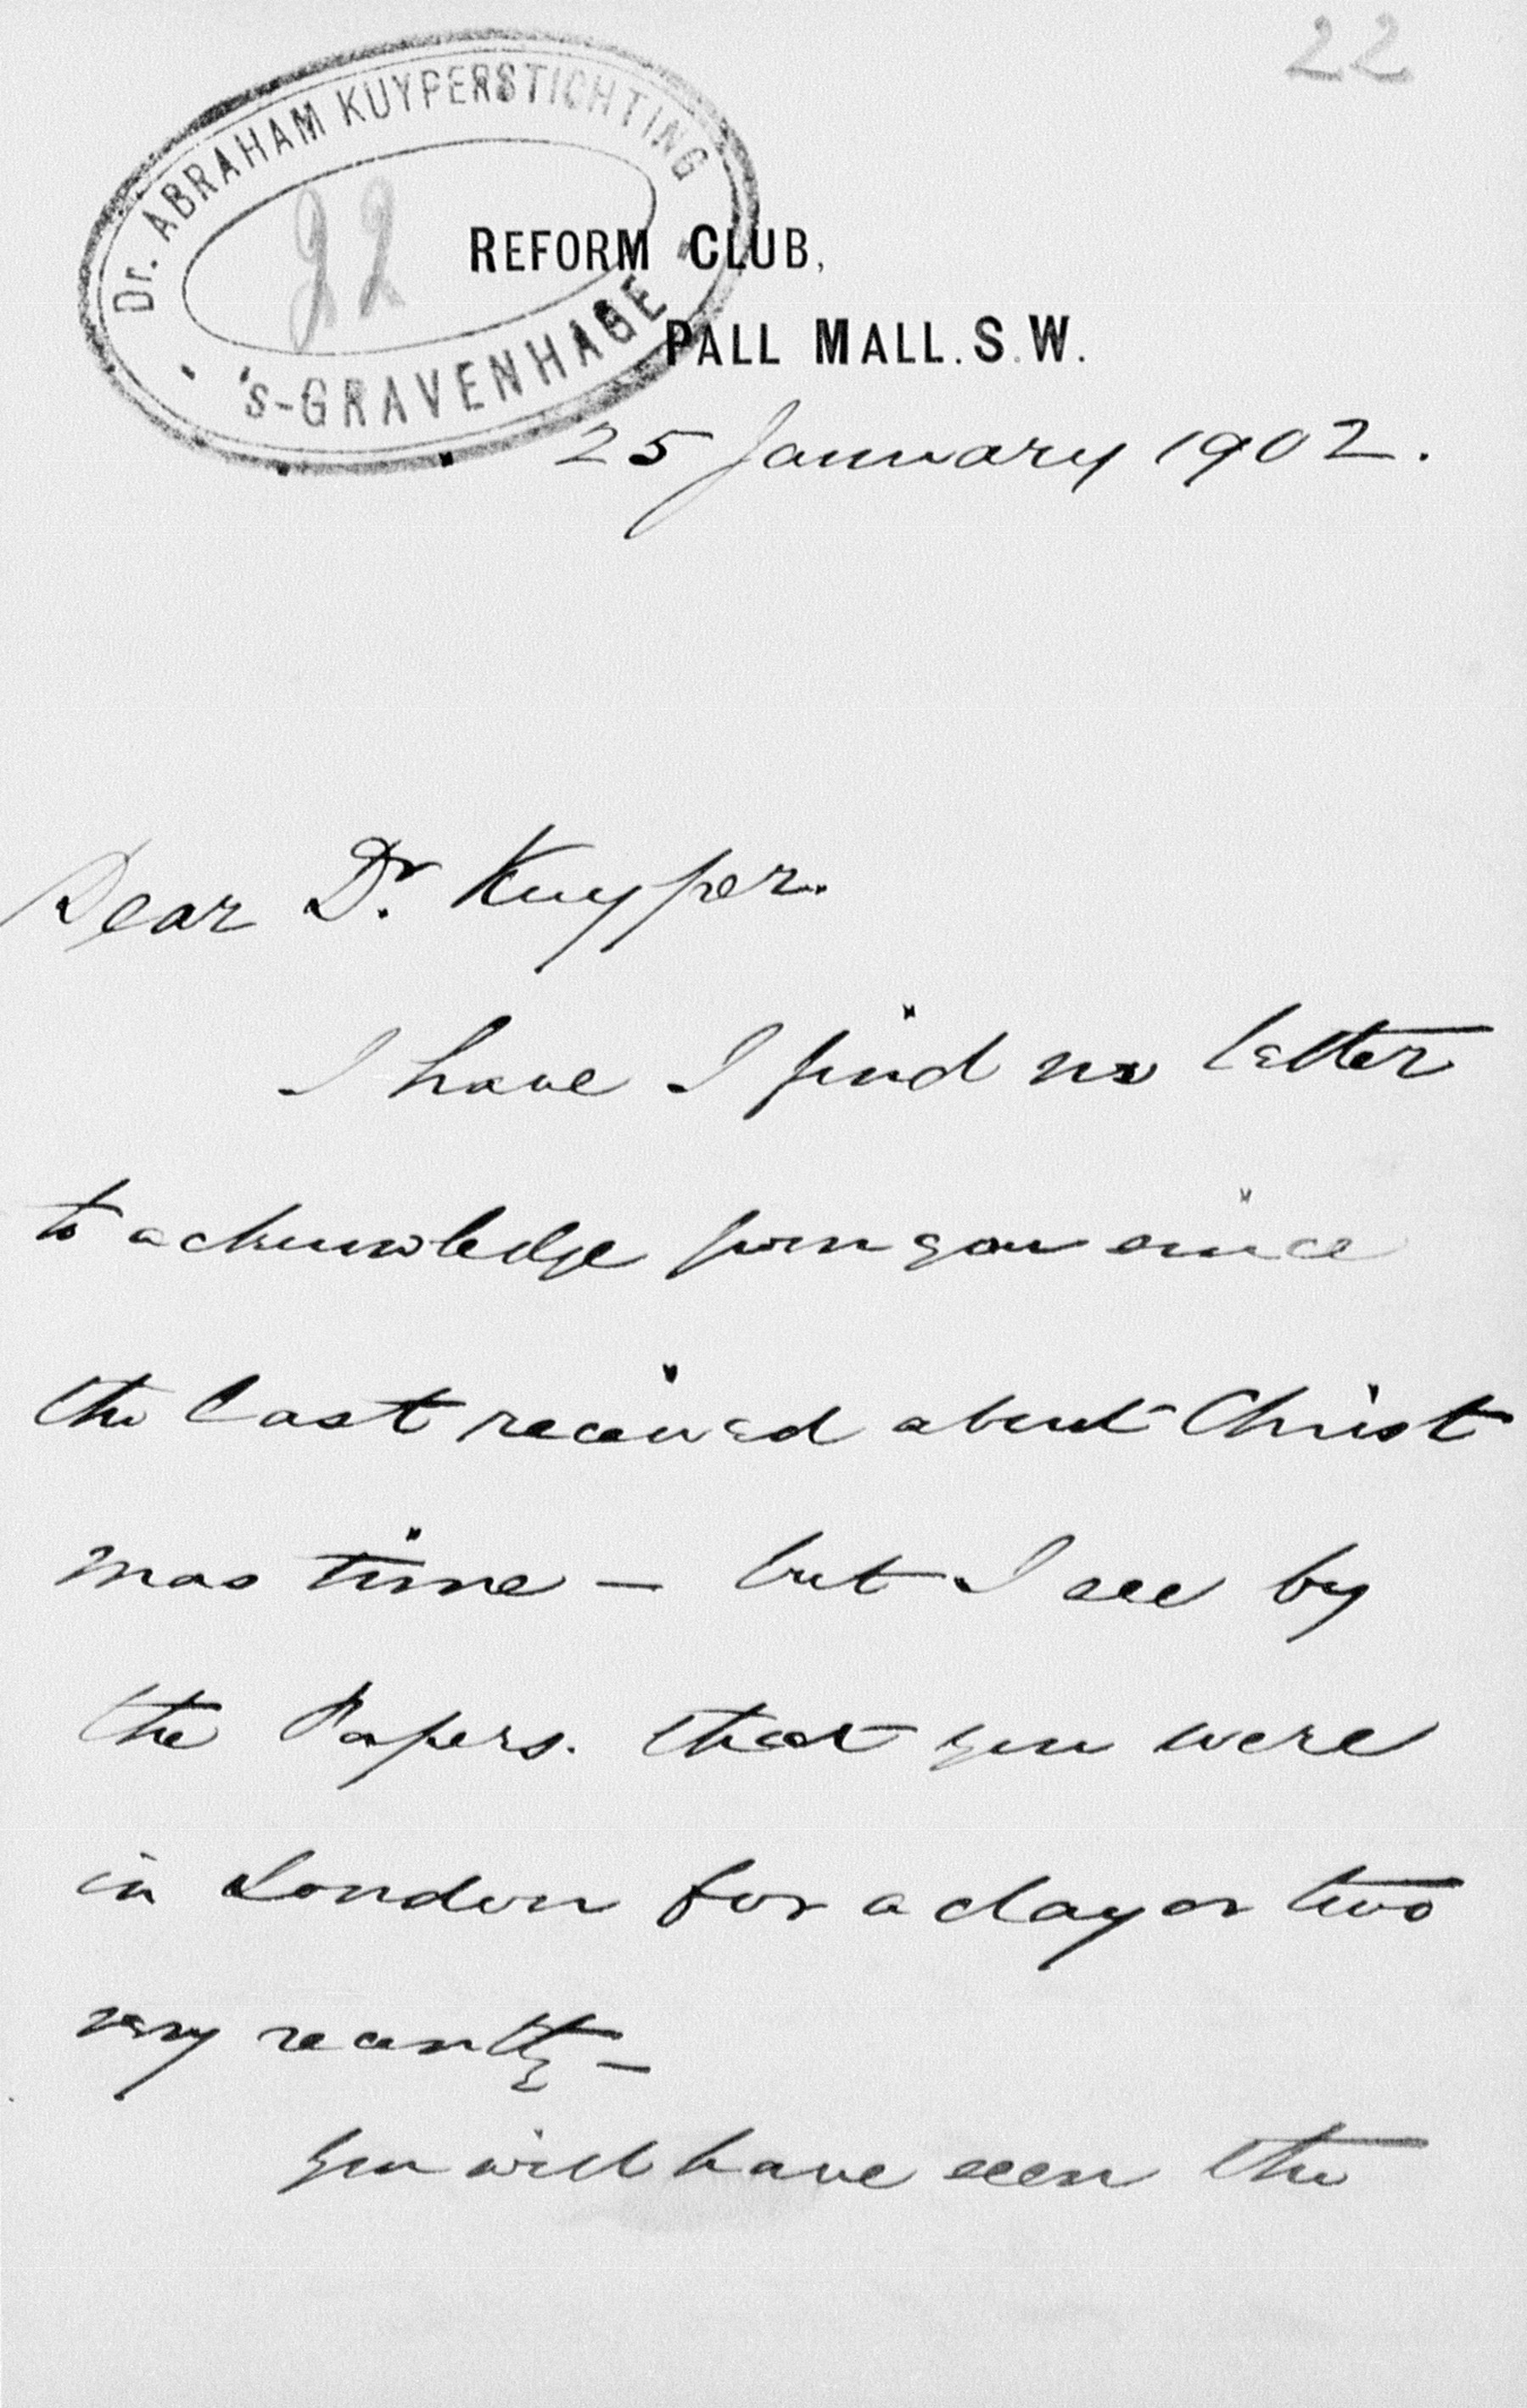 22
Dr. ABRAHAM KUYPERSTICHTING
22
's-GRAVENHAGE
REFORM CLUB,
PALL MALL. S.W.
25 January 1902.
Dear Dr. Kuyper.
I have I find no letter
to acknowledge from you since
the last received about Christ
mas time — but I see by
the Papers. that you were
in London for a day or two
very recently —
You will have seen the